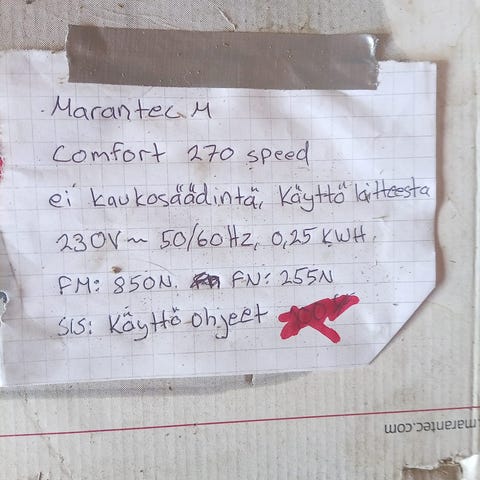 Marantec M
Comfort 270 speed
ei kaukosäädintä, Käyttö laitteesta
230V~ 50/60Hz, 0,25 KWH
FM: 850N. FN: 255N
SIS: Käyttö ohjeet
marantec.com